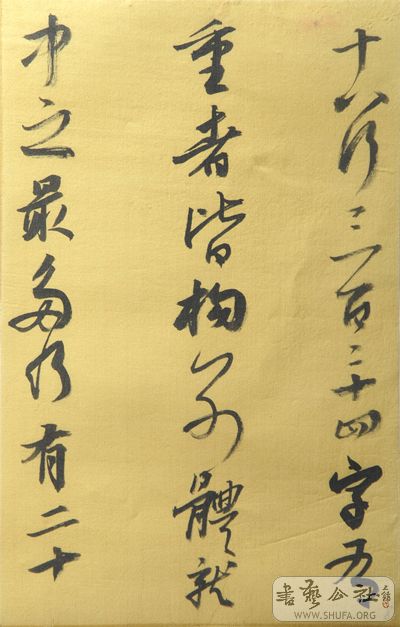 十八行三百二十四字有
重者皆構別體就
中之最多乃有二十
書藝公社
WWW.SHUFA.ORG